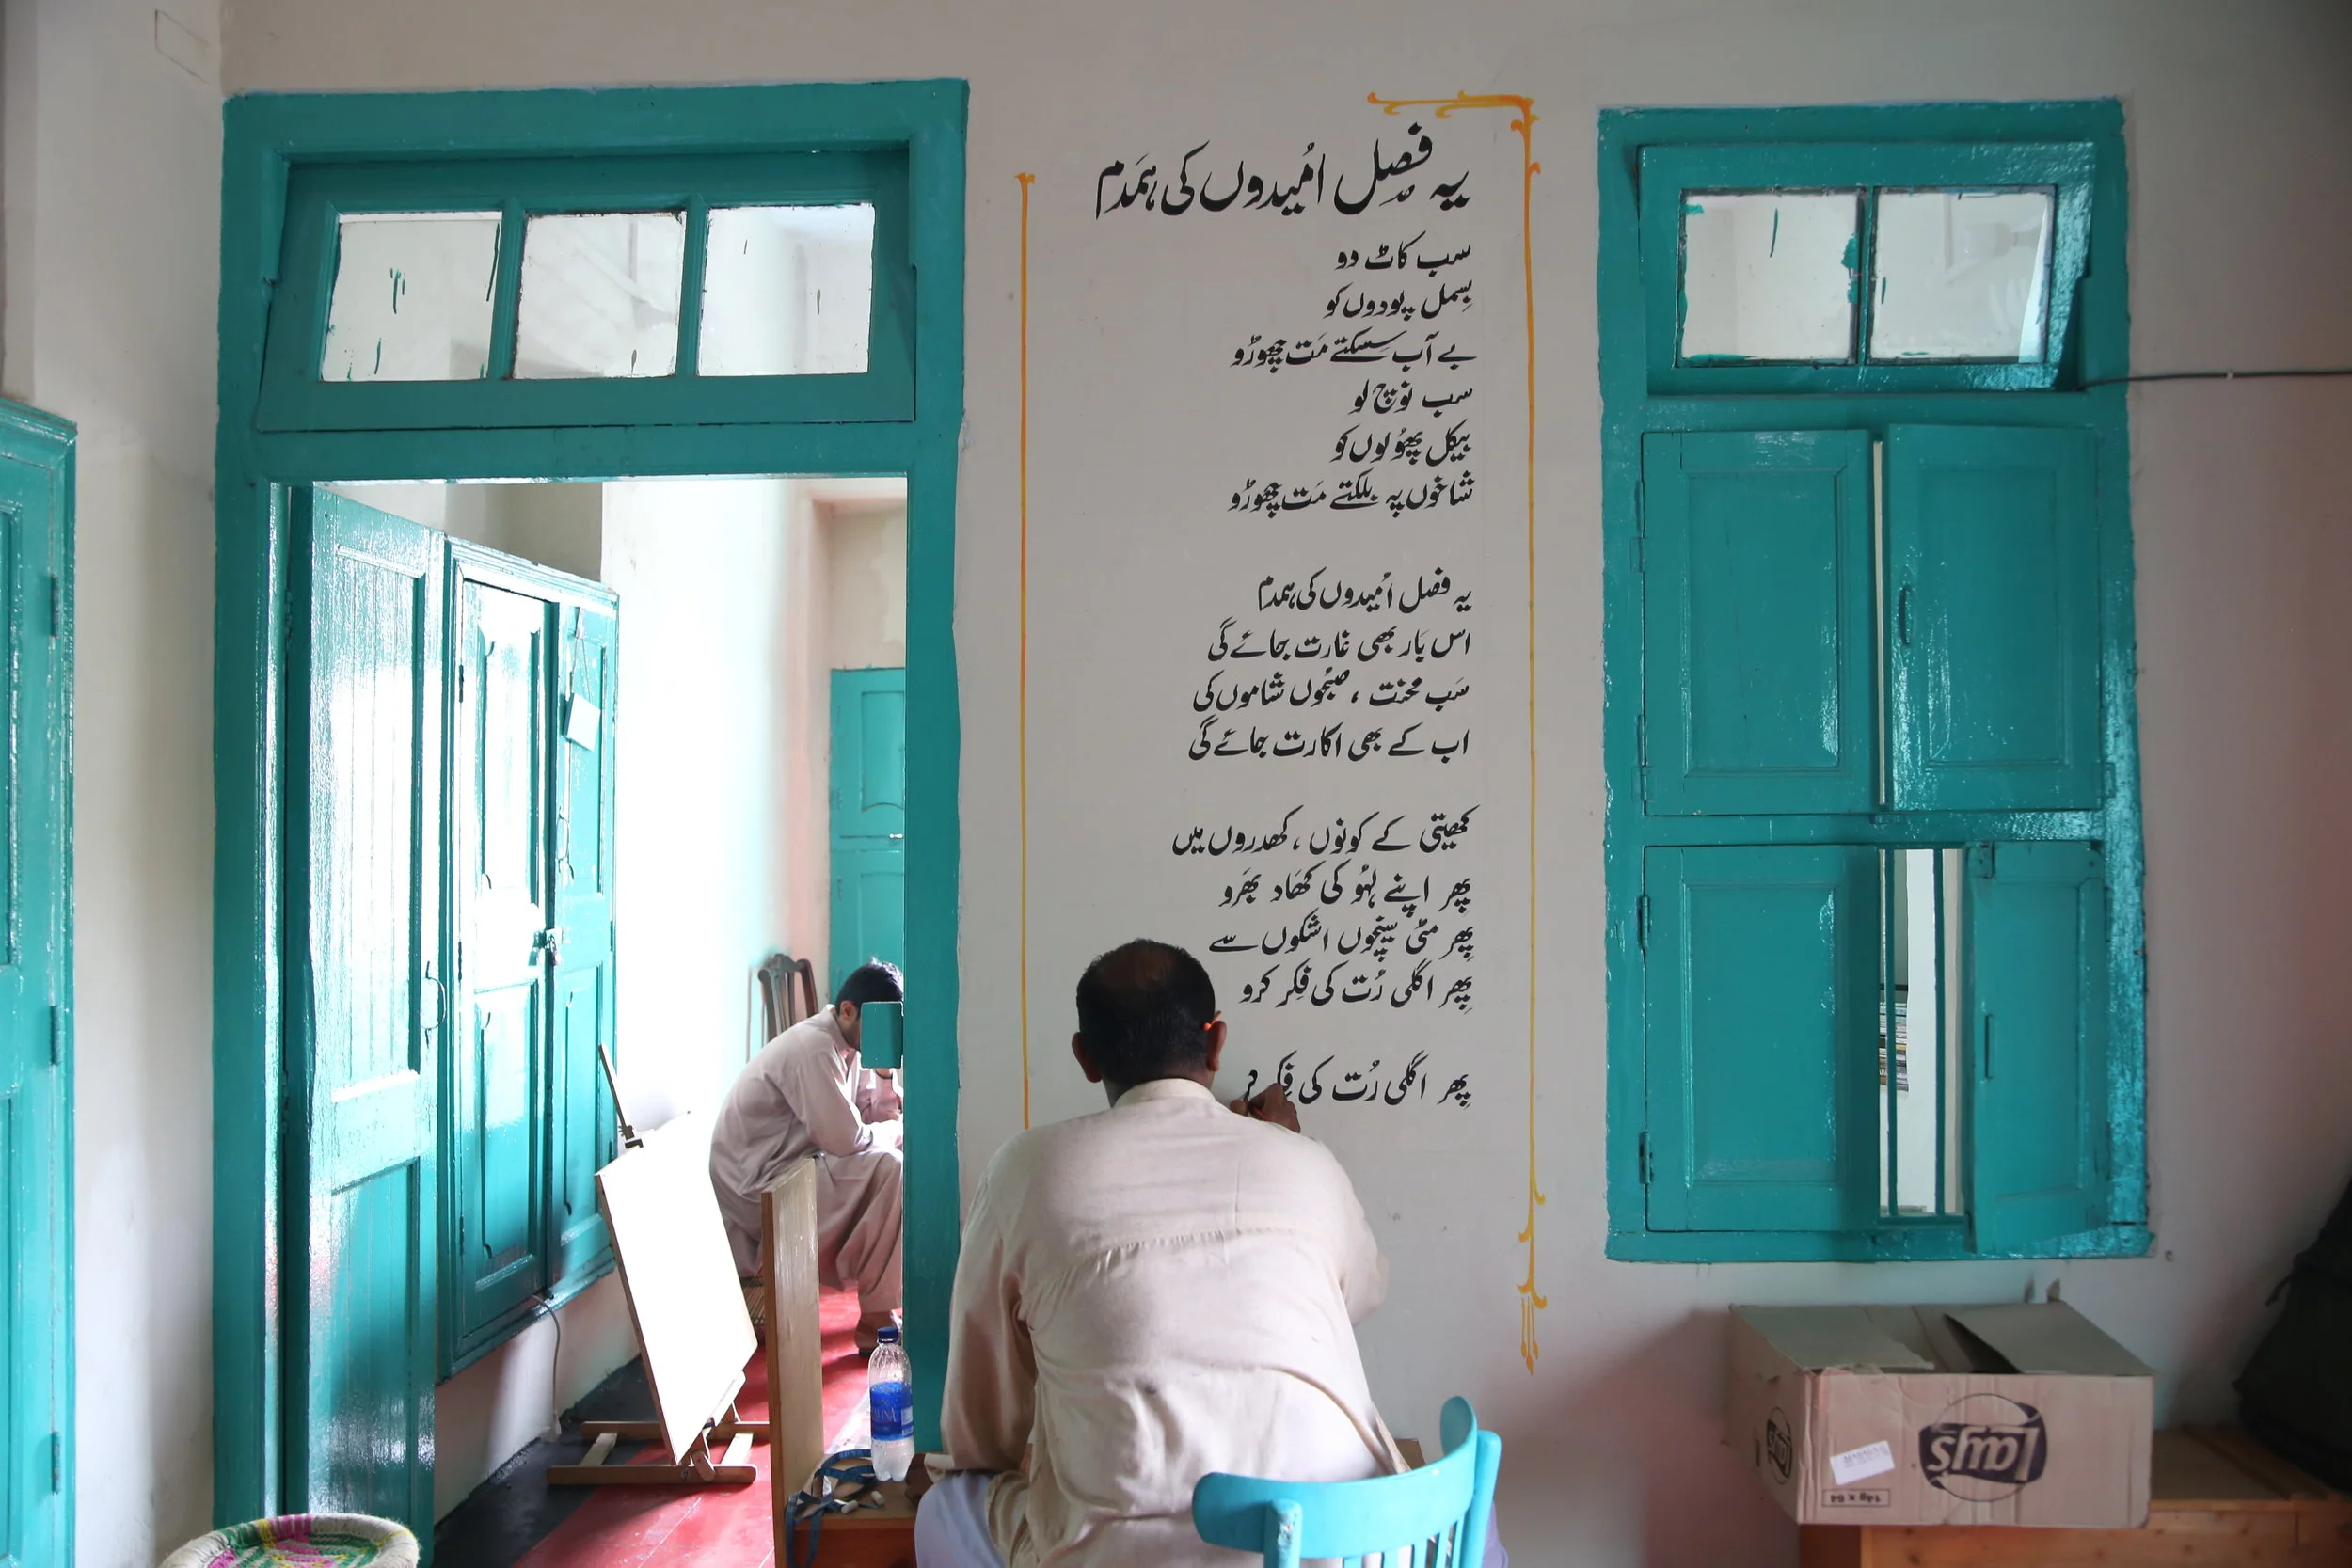 یہ فصل اُمیدوں کی ہمَدم
سب کاٹ دو
بِسمل پودوں کو
بے آب سسکتے مَت چھوڑو
سب نوچ لو
بیکل پھُولوں کو
شاخوں پہ بلکتے مَت چھوڑو
یہ فصل اُمیدوں کی ہمدم
اس بَار بھی غارت جائے گی
سَب محنت ، صُبحوں شاموں کی
اب کے بھی اکارت جائے گی
کھیتی کے کونوں ، کھدروں میں
پھر اپنے لہُو کی کھَاد بھَرو
پھِر مٹی سینچوں اشکوں سے
پھِر اگلی رُت کی فِکر کرو
پھِر اگلی رُت کی فِکر
Lay's
14g x 64